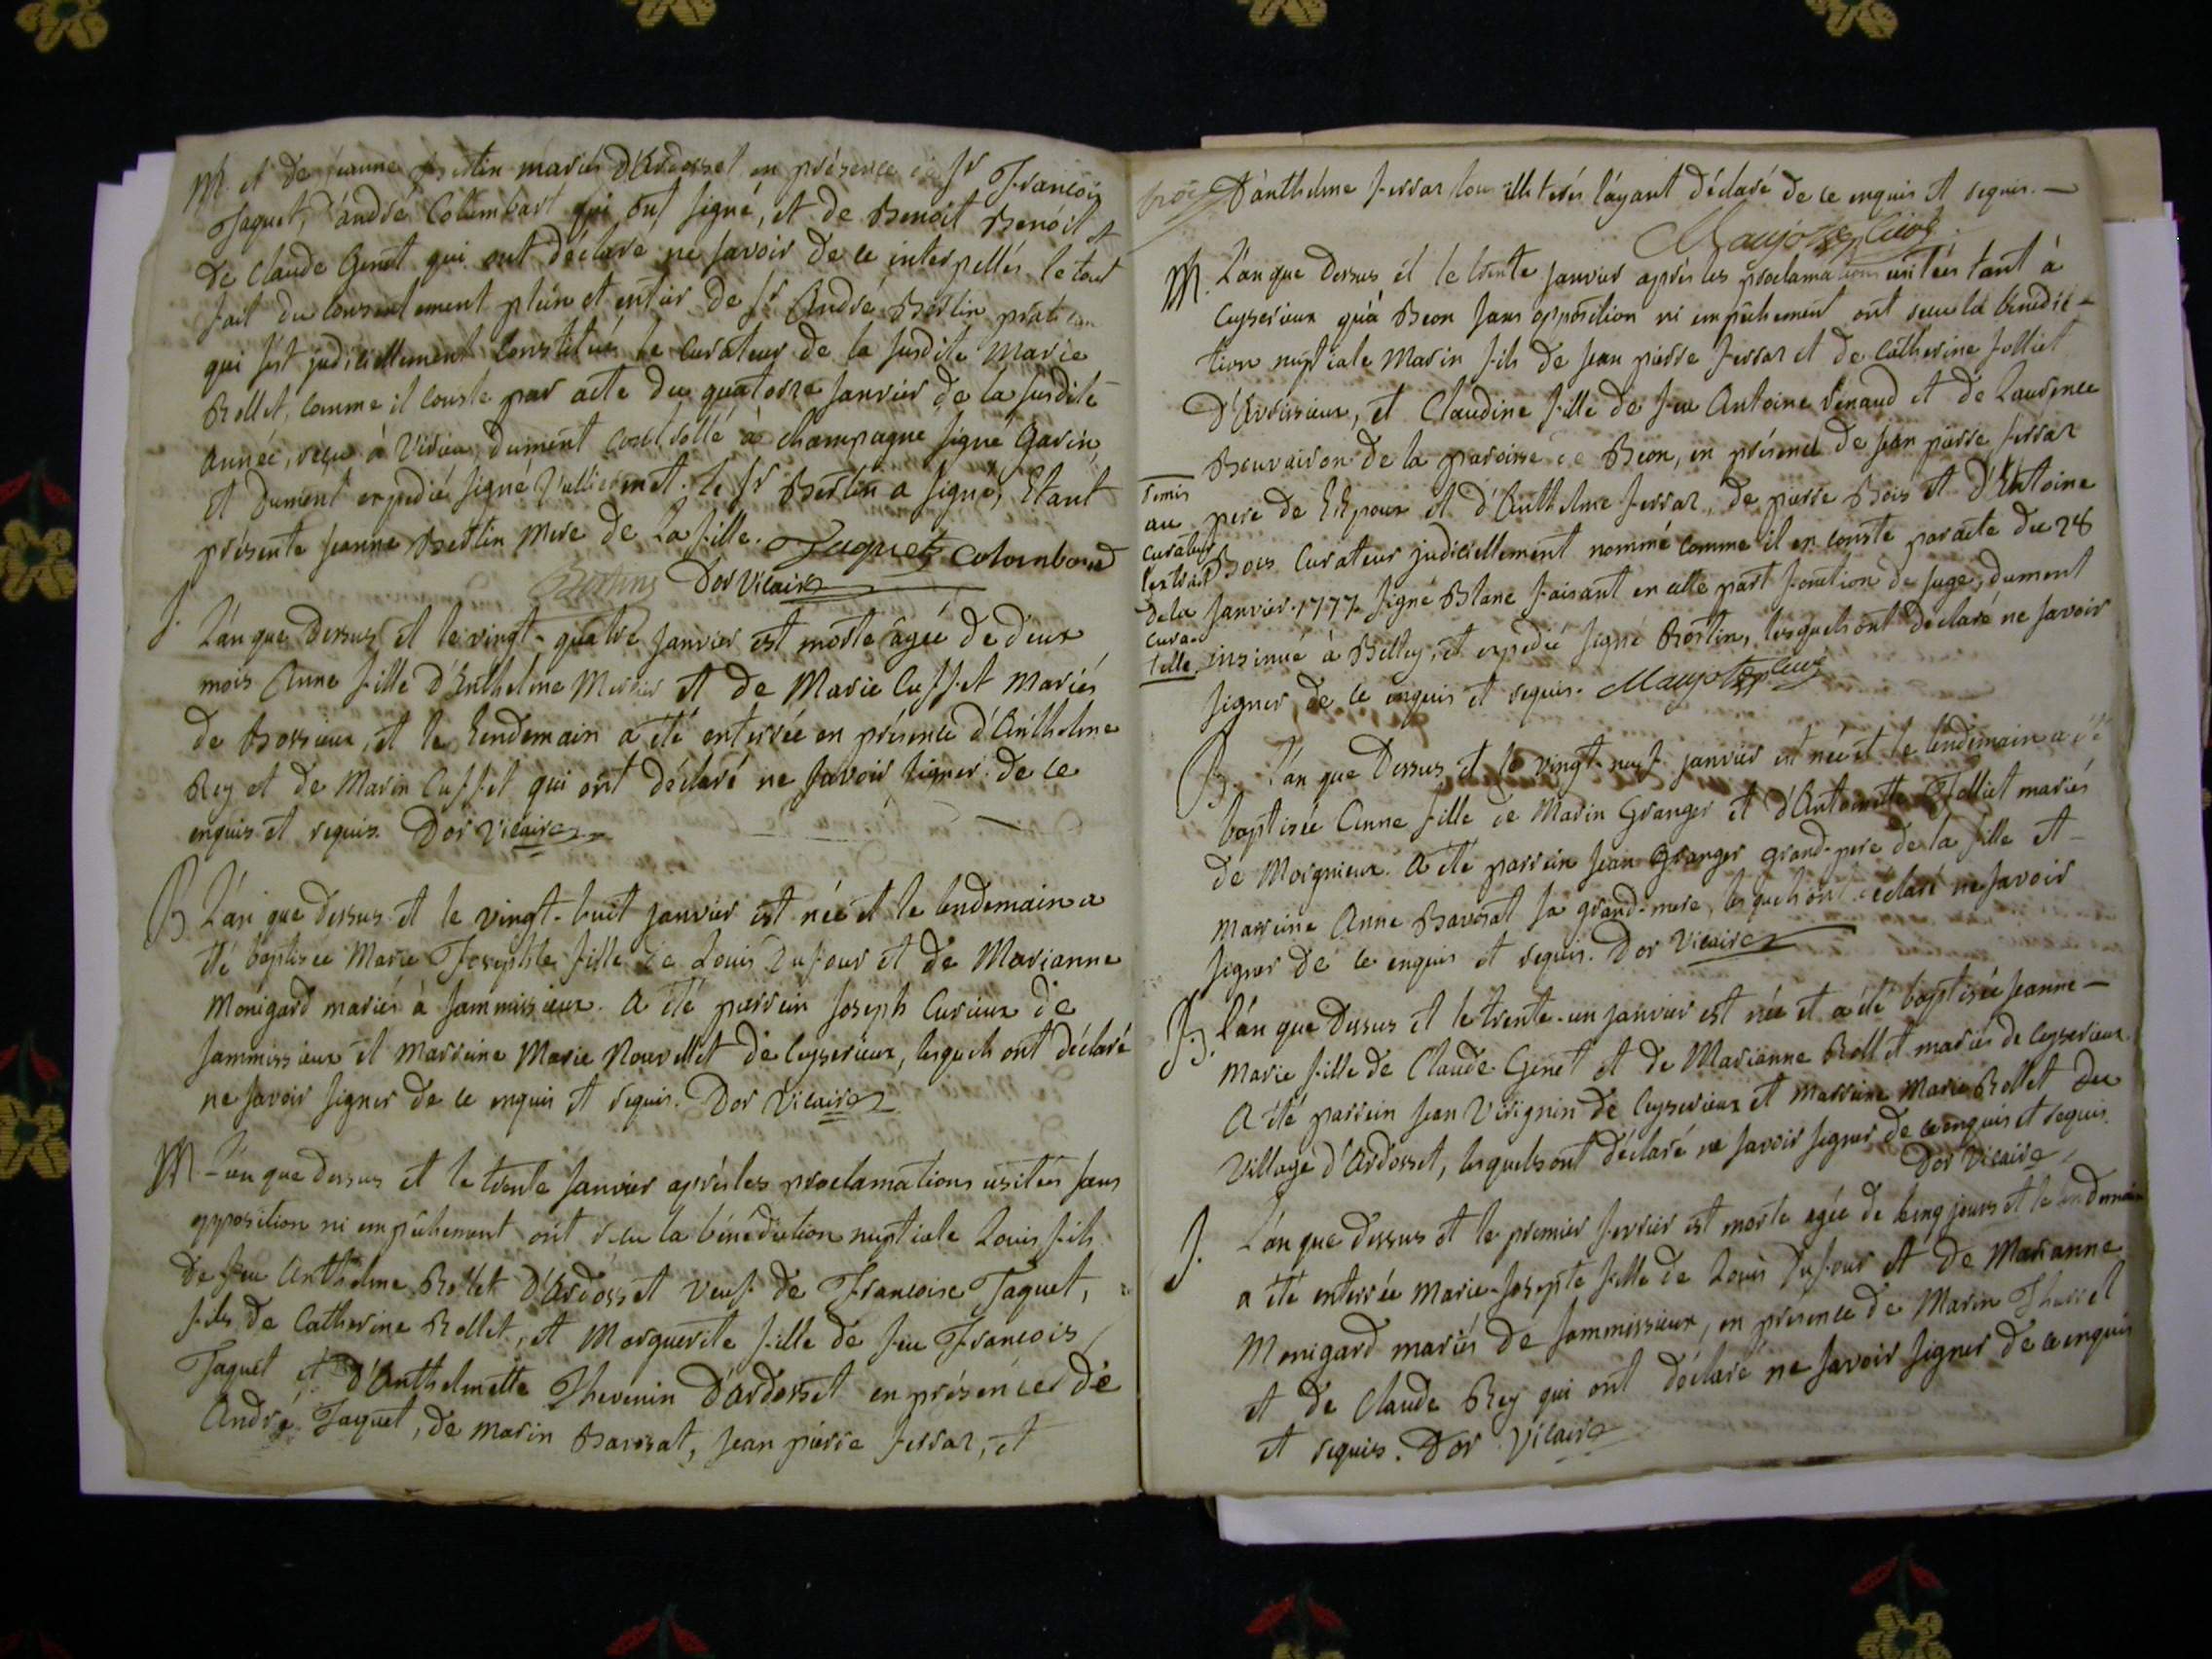 M. et De jeanne Bertin mariés D'Ardosset en présence de Sr François
Jaquet, d'andré Colombart qui ont signé, et de Benoit Benoit et
de Claude Genet qui ont déclaré ne savoir de ce interpellés. le tout
fait du consentement plein et entier de Sr André Bertin praticien
qui s'est judiciellement constitué le curateur de la susdite Marie
Rollet, comme il conste par acte du quatorze janvier de la susdite
année, reçu à Virieu, dument controllé à champagne signé Garin,
et Dument expedié signé Vulliermet. le Sr Bertin a signé, Etant
présente jeanne Bertin mere de la fille. Jaquet Colombard
Bertin Dor Vicaire
S. L'an que Dessus et le vingt-quatre janvier est morte agée de deux
mois Anne fille d'Anthelme Mercier et de Marie Cuffet mariés
de Bossieux, et le lendemain a été enterrée en présence d'Anthelme
Rey et de Marin Cuffet qui ont déclaré ne savoir signer de ce
enquis et requis. Dor Vicaire
B L'an que dessus et le vingt-huit janvier est née et le lendemain a
été baptisée Marie Josephte fille de Louis Dufour et de Marianne
Monigard mariés à Sammissieux. a été parrein Joseph Curieux de
Sammissieux et marreine Marie Nouvellet de Ceyserieux, lesquels ont déclaré
ne savoir signer de ce enquis et requis. Dor Vicaire
M L'an que dessus et le trente janvier après les proclamations usitées sans
opposition ni empêchement ont reçu la bénédiction nuptiale Louis fils
de feu Anthelme Rollet D'Ardosset veuf de Françoise Jaquet,
fils de Catherine Rollet, et Marguerite fille de feu François
Jaquet et D'Anthelmette Thevenin D'ardosset en présence de
André Jaquet, de marin Bavosat, jean pierre ferrar, et
D'anthelme ferrar tous illiterés l'ayant déclaré de ce enquis et requis.
Maujot curé
M. L'an que Dessus et le trente janvier après les proclamations usitées tant à
Ceyserieux qu'à Beon sans opposition ni empêchement ont reçu la bénédic-
tion nuptiale Marin fils de jean pierre ferrar et de Catherine folliet
D'Avrissieux, et Claudine fille de feu Antoine Renaud et de Laurence
Bouvairon de la paroisse de Beon, en présence de jean pierre ferrar
pere de l'Epoux et d'Anthelme ferrar, de pierre Bois et D'Antoine
Bois Curateur judiciellement nommé comme il en conste par acte du 28
janvier 1777 signé Blanc faisant en cette part fonction de juge, dument
insinué à Belley, et expedié signé Bertin, lesquels ont déclaré ne savoir
signer de ce enquis et requis. Maujot curé
remis
au
curateur
l'extrait
De la
cura-
telle
B. L'an que Dessus et le vingt-neuf janvier est née et le lendemain a été
baptisée Anne fille de Marin Granger et d'Antoinette Folliet mariés
de Morgnieux. a été parrein jean Granger grand-pere de la fille et
marreine Anne Bavosat sa grand-mere, lesquels ont déclaré ne savoir
signer de ce enquis et requis. Dor Vicaire
B. L'an que Dessus et le trente-un janvier est née et a été baptisée jeanne
Marie fille de Claude Genet et de Marianne Rollet mariés de Ceyserieux.
a été parrein jean Virignin de Ceyserieux et marreine Marie Rollet du
Village d'Ardosset, lesquels ont déclaré ne savoir signer de ce enquis et requis.
Dor Vicaire
S. L'an que dessus et le premier fevrier est morte agée de cinq jours et le lendemain
a été enterrée Marie-Josepte fille de Louis Dufour et de Marianne
Monigard mariés de Sammissieux, en presence de Marin
et de Claude Rey qui ont déclaré ne savoir signer de ce enquis
et requis. Dor Vicaire